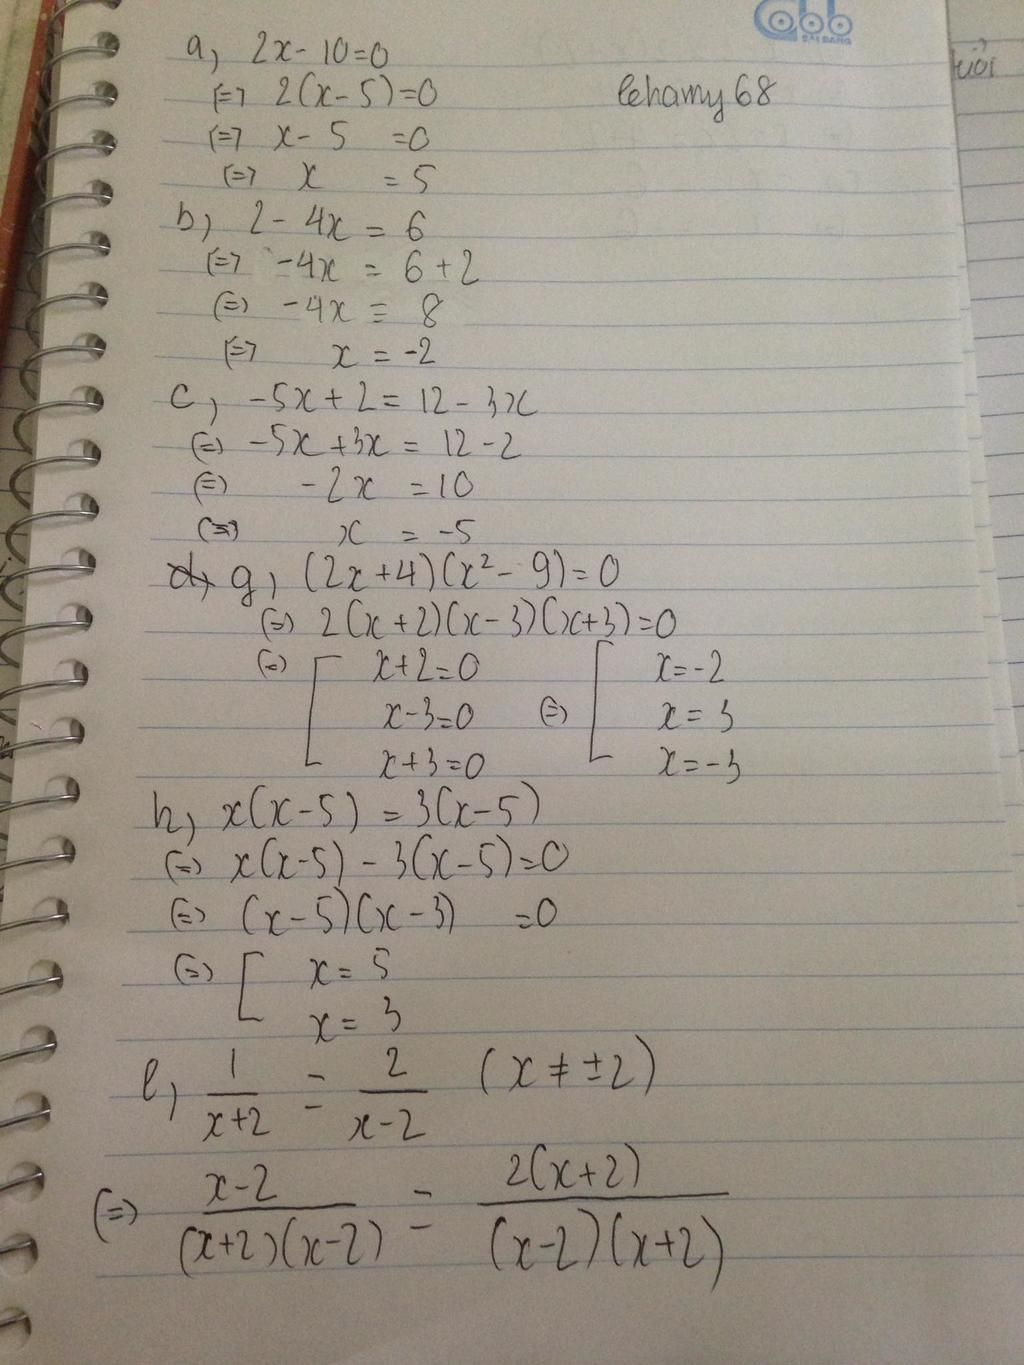 Cabb
HAI DANG
a, 2x - 10 = 0
lehamy 68
<=> 2(x - 5) = 0
<=> x - 5 = 0
<=> x = 5
b, 2 - 4x = 6
<=> -4x = 6 + 2
<=> -4x = 8
<=> x = -2
c, -5x + 2 = 12 - 3x
<=> -5x + 3x = 12 - 2
<=> -2x = 10
<=> x = -5
d, g, (2x + 4)(x² - 9) = 0
<=> 2(x + 2)(x - 3)(x + 3) = 0
<=> [ x + 2 = 0 x = -2
x - 3 = 0 <=> [ x = 3
x + 3 = 0 x = -3
h, x(x - 5) = 3(x - 5)
<=> x(x - 5) - 3(x - 5) = 0
<=> (x - 5)(x - 3) = 0
<=> [ x = 5
x = 3
l, 1/(x+2) = 2/(x-2) (x ≠ ±2)
<=> (x-2)/((x+2)(x-2)) = 2(x+2)/((x-2)(x+2))